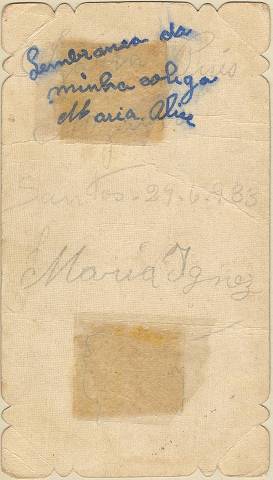 Lembrança da
minha colega
Maria Alice
Santos-29.6.933
Maria Ignez